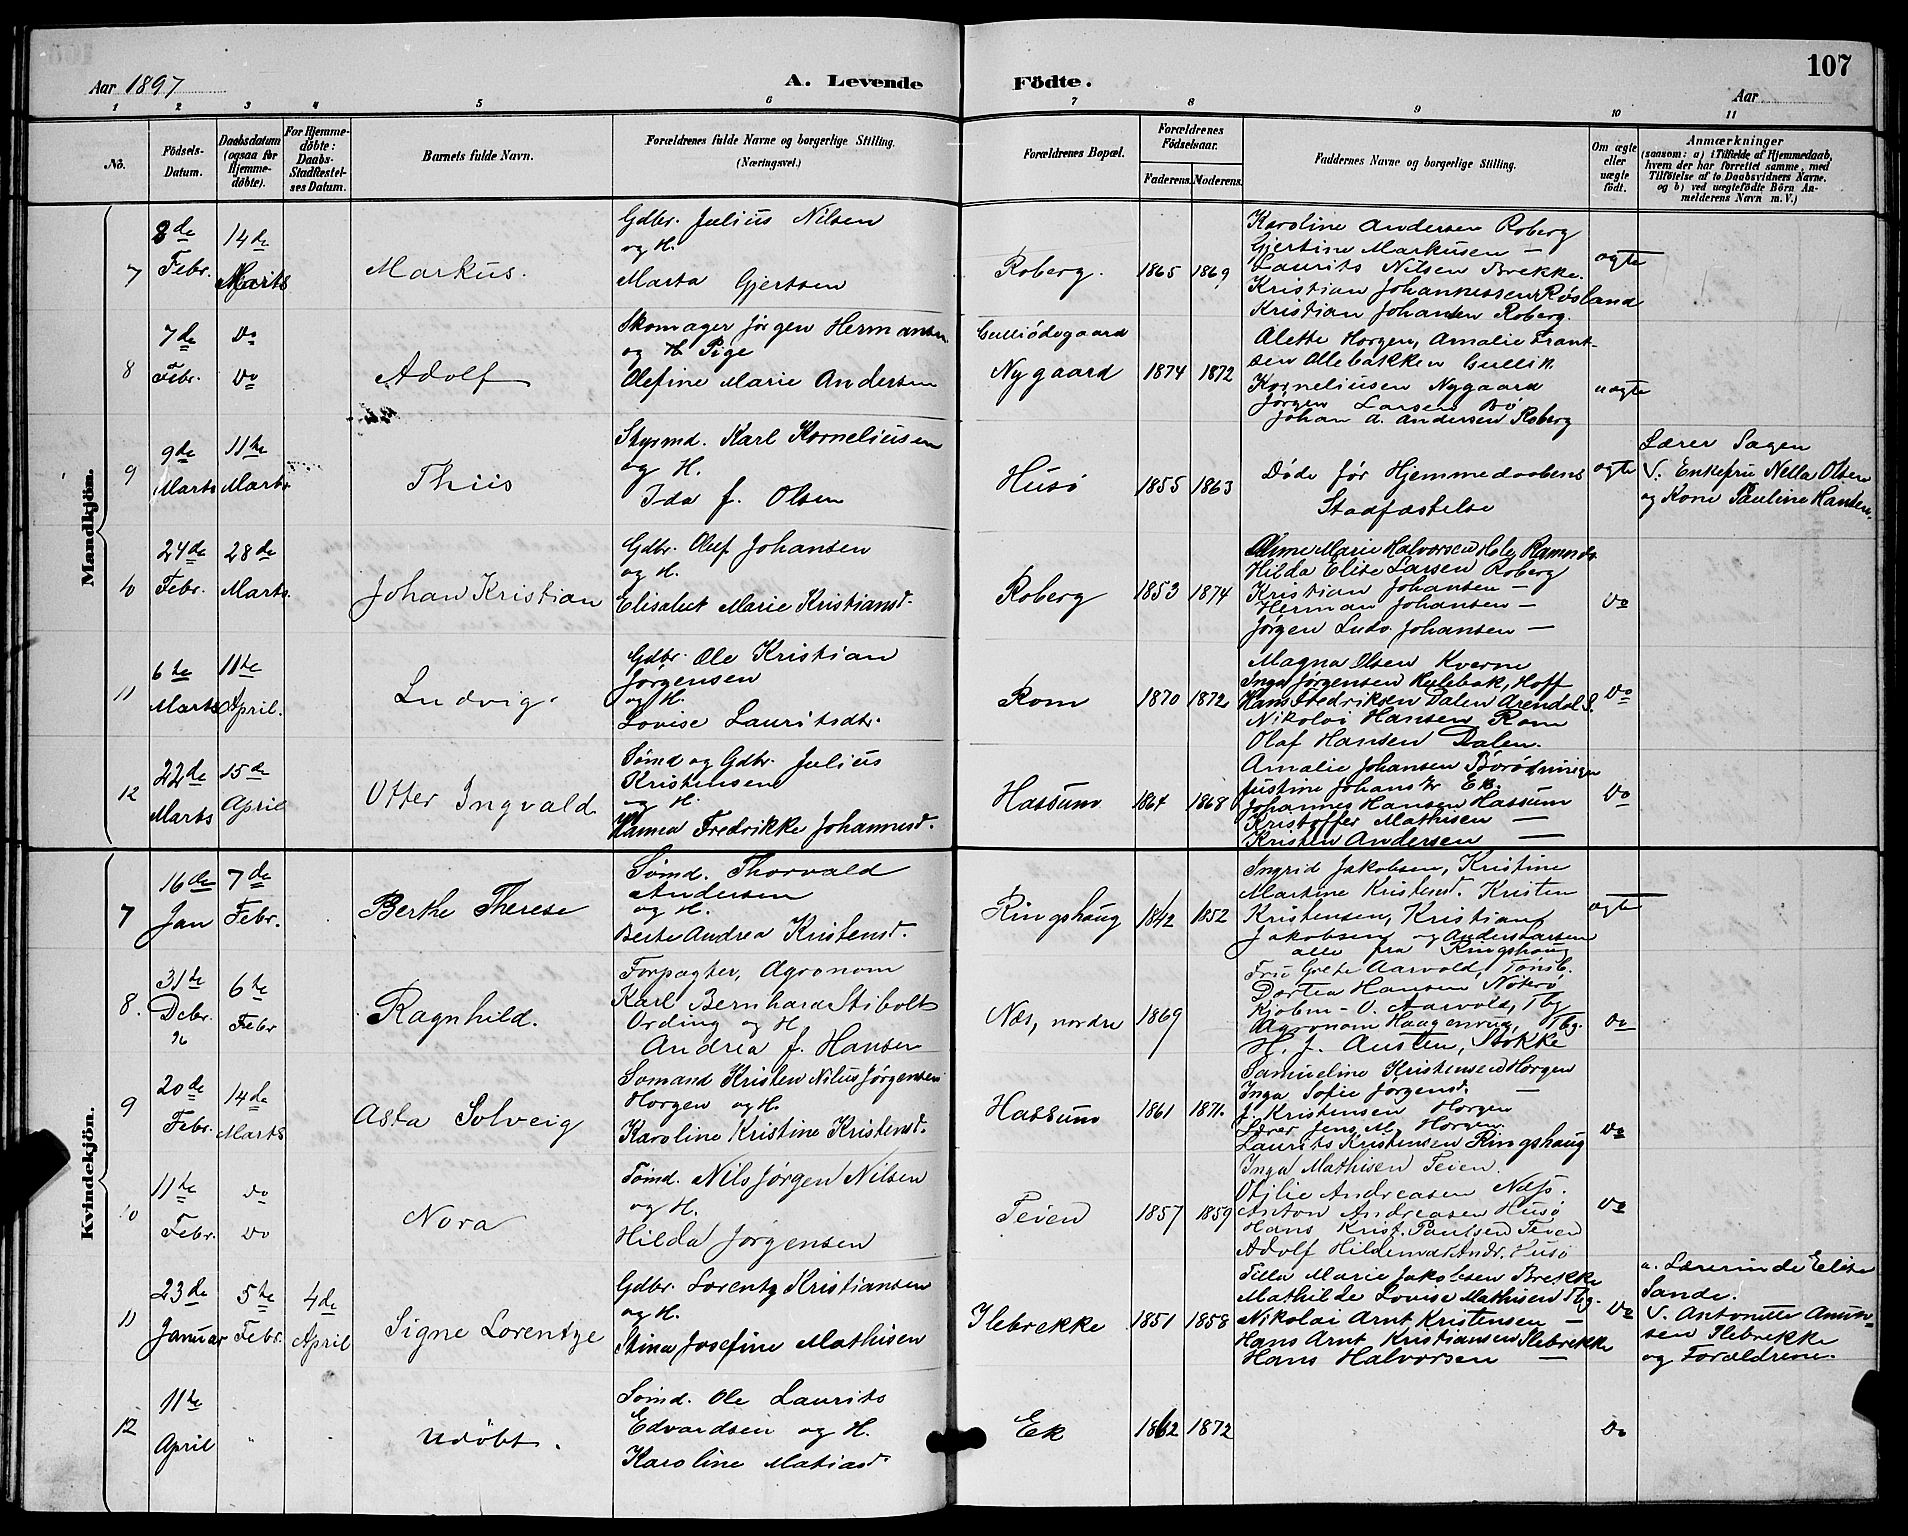 107
Aar 1897
A. Levende Födte.
Aar
1 2 3 4 5 6 7 8 9 10 11
No.
Födsels-Datum.
Daabsdatum (ogsaa for Hjemme-döbte).
For Hjemme-döbte: Daabs-Stadfæstel-ses Datum.
Barnets fulde Navn.
Forældrenes fulde Navne og borgerlige Stilling. (Næringsvei.)
Forældrenes Bopæl.
Forældrenes Födselsaar.
Faderens. Moderens.
Faddernes Navne og borgerlige Stilling.
Om ægte eller uægte födt.
Anmærkninger
(saasom: a) i Tilfælde af Hjemmedaab, hvem der har forrettet samme, med Tilföielse af to Daabsvidners Navne. og b) ved uægtefödte Börn Anmelderens Navn m. V.)
Mandkjön.
7
8de Febr.
14de Marts
Markus.
Gdbr. Julius Nilsen
og H.
Marta Gjertsen
Roberg.
1865 1869
Karoline Andersen Roberg
Gjertine Markusen —
Laurits Nilsen Brekke.
Kristian Johannessen Røsland
Kristian Johansen Roberg.
ægte
8
7de Febr.
Do Do
Adolf
Skomager Jørgen Hermansen
og Pige
Olefine Marie Andersen
Nygaard
1874 1872
Alette Horgen, Amalie Frant-
sen Ollebakken Gullik
Korneliusen Nygaard
Jørgen Larsen Bø
Johan A. Andersen Roberg
uægte
9
9de Marts
11te Marts
Thiis
Styrmd. Karl Korneliusen
og H.
Ida J. Olsen
Husö
1855 1863
Døde før Hjemmedaabens
Stadfæstelse
ægte
Lærer Sagen
V. Enkefru Nella Olsen
og Kone Pauline Hansen.
10
24de Febr.
28de Marts.
Johan Kristian
Gdbr. Oluf Johansen
og H.
Elisabet Marie Kristiansd.
Roberg
1853 1874
Marie Halvorsen Ramnæs
Hilda Elise Larsen Roberg
Kristian Johansen —
Herman Johansen —
Jørgen Ludv. Johansen —
Do
11
6te Marts
11te April.
Ludvig.
Gdbr. Ole Kristian
Jørgensen
og H.
Lovise Lauritsdtr.
Rom
1870 1872
Magna Olsen Kverne
Inga Jørgensen Kulebak, Hoff
Hans Fredriksen Dalen Arendal S.
Nikolai Hansen Rom
Olaf Hansen Dalen.
Do
12
22de Marts
15de April
Otter Ingvald
Sömd og Gdbr. Julius
Kristensen
og H.
Hanna Fredrikke Johannesd.
Hassum
1864 1868
Amalie Johansen
Justine Johansdtr Ek.
Johannes Hansen Hassum
Kristoffer Mathisen —
Kristen Andersen —
Do
Kvindekjön.
7
16de Jan
7de Febr.
Berthe Therese
Sömd. Thorvald
Andersen
og H.
Berte Andrea Kristensd.
Ringshaug
1842 1852
Ingrid Jakobsen, Kristine
Martine Kristensd. Kristen
Kristensen, Kristian
Jakobsen og Anders Larsen
alle fra Ringshaug
ægte
8.
31te Debr. 96
6te Febr
Ragnhild.
Forpagter, Agronom
Karl Bernhard Stibolt
Ording og H.
Andrea J. Hansen
Næs, nordre
1869
Fru Grete Aarvold, Tönsb.
Dortea Hansen Nöterö
Kjøbm - O. Aarvold, Tbg
Agronom Haagensen, Tbg.
H. J. Austen, Stokke
Do
9
20de Febr.
14de Marts
Asta Solveig
Sømand Kristen Nilus Jørgensen
Horgen og H.
Karoline Kristine Kristensd.
Hassum
1861 1871.
Samueline Kristensen Horgen
Inga Sofie Jørgensd. —
J. Kristensen Horgen
Lærer Jens M. Horgen
Laurits Kristensen Ringshaug
Do
10
11te Febr.
Do Do
Nora
Sömd. Nils Jørgen Nilsen
og H.
Hilda Jørgensen
Teien
1857 1859
Inga Mathisen Teien.
Otilie Andreasen Næss.
Anton Andreasen Husö
Hans Krist. Paulsen Teien
Adolf Hildemar Andr. Husö
Do
11
23de Januar
5te Febr.
4de April
Signe Lorentze
Gdbr. Lorentz Kristiansen
og H.
Stina Josefine Mathisen
Ilebrekke
1851 1858
Tilla Marie Jakobsen Brekke
Mathilde Lovise Mathisen Tbg.
Nikolai Arnt Kristensen —
Hans Arnt Kristiansen Ilebrekke
Hans Halvorsen —
Do
a. Lærerinde Elise
Sande.
V. Antonette Amun-
sen Ilebrekke
og Forældrene.
12
11te April
Udöbt.
Sömd. Ole Laurits
Edvardsen og H.
Karoline Matiasd.
Ek
1862 1872
Do